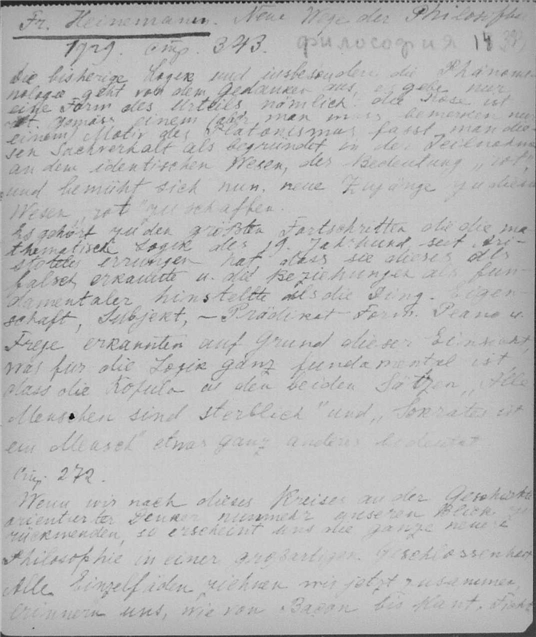 Fr. Heinemann. Neue Wege der Philosophie
1929. стр. 343. философия 14
Die bisherige Logik und insbesondere die Phänome-
nologie geht von dem Gedanken aus, es gebe nur
eine Form des Urteils nämlich: die Rose ist
rot. gemäss einem
einem Motiv des Platonismus fasst man die-
sen Sachverhalt als begründet in der Teilnahme
an dem identischen Wesen, der Bedeutung „rot",
und bemüht sich nun, neue Zugänge zu diesem
Wesen „rot" zu schaffen.
Es gehört zu den größten Fortschritten die die ma-
thematische Logik des 19. Jahrhund. seit Ari-
stoteles errungen hat, dass sie dieses als
falsch erkannte u. die Beziehungen als fun-
damentaler hinstellte als die Ding-Eigen-
schaft, Subjekt, – Prädikat-Form. Peano u.
Frege erkannten auf Grund dieser Einsicht,
was für die Logik ganz fundamental ist
dass die Kopula in den beiden Sätzen „Alle
Menschen sind sterblich" und „Sokrates ist
ein Mensch" etwas ganz anderes bedeutet
Стр. 272.
Wenn wir nach dieses Kreises an der Geschichte
orientierter Denker nunmehr unseren Blick zu
rückwenden, so erscheint uns die ganze neuere
Philosophie in einer großartigen Geschlossenheit
Alle Einzelfäden ziehen wir jetzt zusammen,
erinnern uns, wie von Bacon bis Kant, Fichte